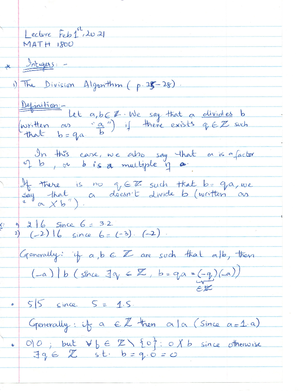 Lecture Feb 1st, 2021
MATH 1800
* Integers :-
1) The Division Algorithm ( p. 25-28)
Definition:-
Let a,b ∈ ℤ. We say that a divides b
(written as "a/b") if there exists q ∈ ℤ such
that b = qa
In this case, we also say that a is a factor
of b, or b is a multiple of a
If there is no q ∈ ℤ such that b = qa, we
say that a doesn't divide b (written as
"a ∤ b").
2|6 since 6 = 3.2
(-2)|6 since 6 = (-3) (-2)
Generally: if a,b ∈ ℤ are such that a|b, then
(-a) | b (since ∃q ∈ ℤ, b = qa = (-q)(-a))
∈ℤ
• 5|5 since 5 = 1.5
Generally: if a ∈ ℤ then a|a (Since a = 1.a)
• 0|0 ; but ∀b ∈ ℤ \ {0} : 0 ∤ b since otherwise
∃q ∈ ℤ s.t. b = q.0 = 0